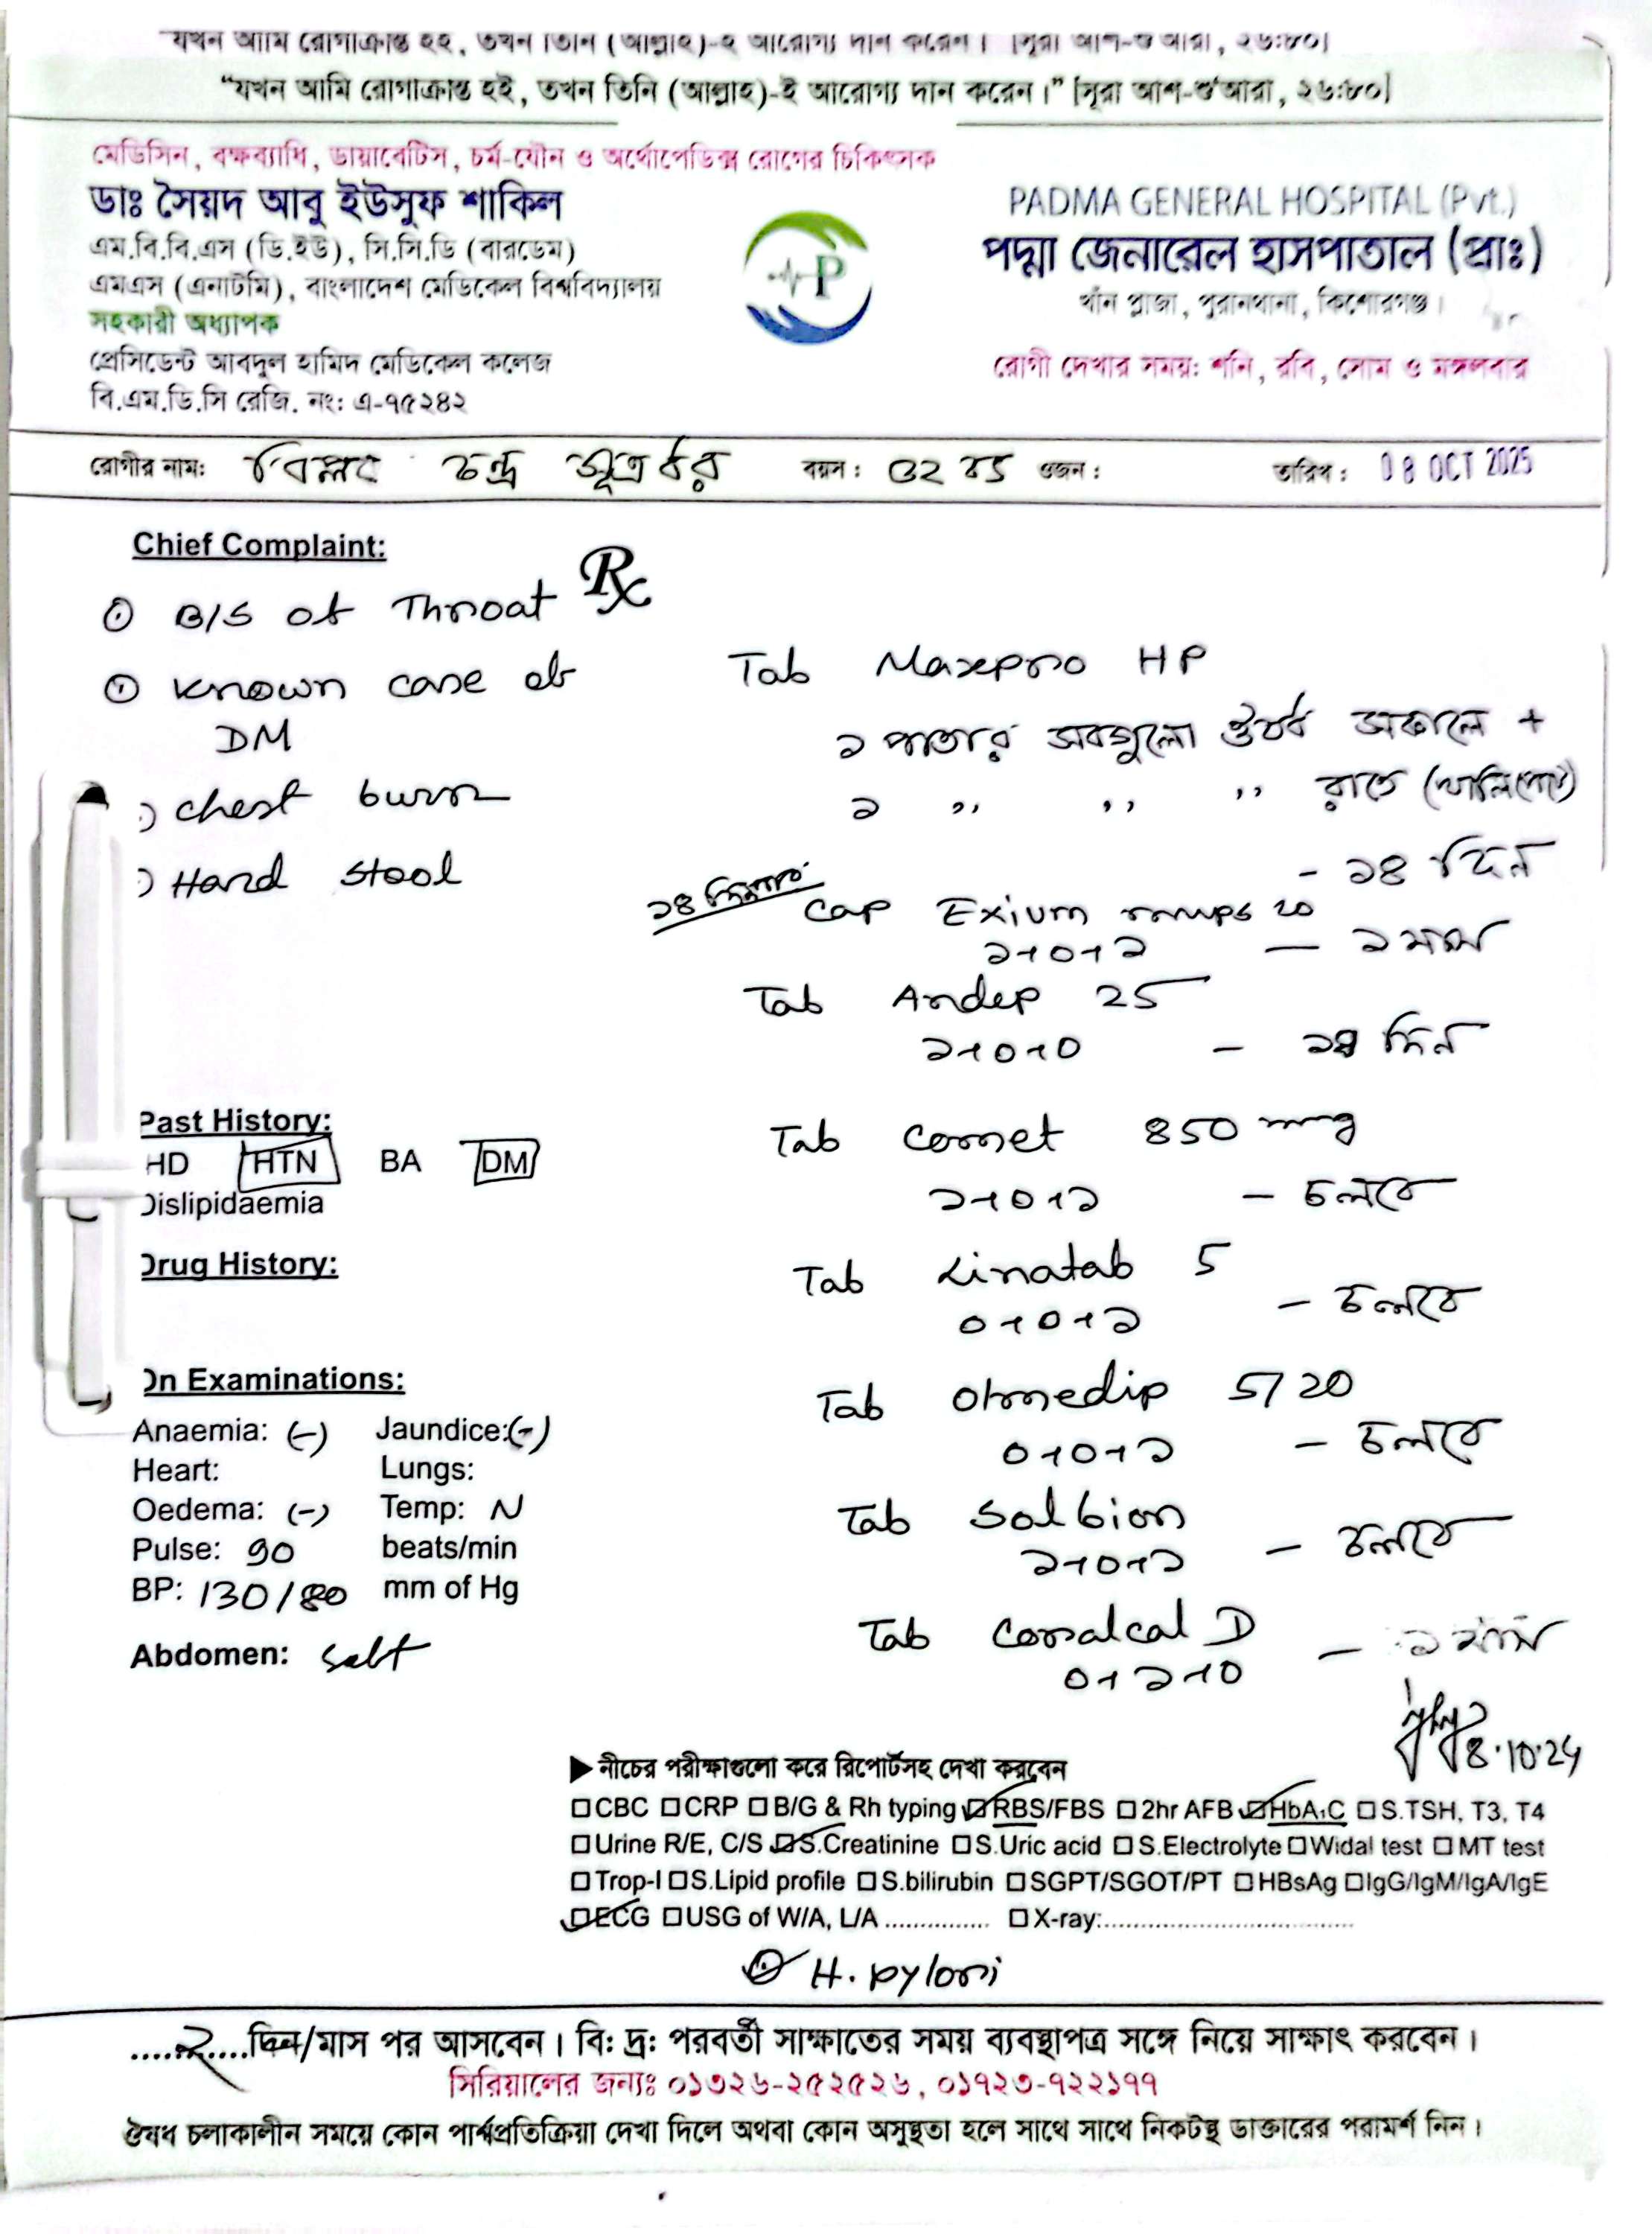 “যখন আমি রোগাক্রান্ত হই, তখন তিনি (আল্লাহ)-ই আরোগ্য দান করেন।” [সূরা আশ-শু‘আরা, ২৬:৮০]
“যখন আমি রোগাক্রান্ত হই, তখন তিনি (আল্লাহ)-ই আরোগ্য দান করেন।” [সূরা আশ-শু‘আরা, ২৬:৮০]
মেডিসিন, বক্ষব্যাধি, ডায়াবেটিস, চর্ম-যৌন ও অর্থোপেডিক্স রোগের চিকিৎসক
ডাঃ সৈয়দ আবু ইউসুফ শাকিল
এম.বি.বি.এস (ডি.ইউ), সি.সি.ডি (বারডেম)
এমএস (এনাটমি), বাংলাদেশ মেডিকেল বিশ্ববিদ্যালয়
সহকারী অধ্যাপক
প্রেসিডেন্ট আবদুল হামিদ মেডিকেল কলেজ
বি.এম.ডি.সি রেজি. নং: এ-৭৫২৪২
P
PADMA GENERAL HOSPITAL (Pvt.)
পদ্মা জেনারেল হাসপাতাল (প্রাঃ)
খাঁন প্লাজা, পুরানথানা, কিশোরগঞ্জ।
রোগী দেখার সময়: শনি, রবি, সোম ও মঙ্গলবার
রোগীর নাম: বিপ্লব চন্দ্র সূত্রধর বয়স: ৩২ বছ ওজন: তারিখ: 08 OCT 2025
Chief Complaint:
B/S of Throat
Known case of
DM
Chest burn
Hard stool
Past History:
HD HTN BA DM
Dislipidaemia
Drug History:
On Examinations:
Anaemia: (-) Jaundice:(-)
Heart: Lungs:
Oedema: (-) Temp: N
Pulse: 90 beats/min
BP: 130/80 mm of Hg
Abdomen: soft
Rx
Tab Maxpro HP
১ পাতার সবগুলো ঔষধ সকালে +
১ ,, ,, ,, রাতে (খালিপেটে)
- ১৪ দিন
১৪ দিন পর
Cap Exium mups 20
১+০+১ — ১ মাস
Tab Andep 25
১+০+০ - ১৪ দিন
Tab Comet 850 mg
১+০+১ - চলবে
Tab Linatab 5
০+০+১ - চলবে
Tab Olmedip 5/20
০+০+১ - চলবে
Tab Solbion
১+০+১ - চলবে
Tab Coralcal D
০+১+০ - ১ মাস
8.10.25
▶ নীচের পরীক্ষাগুলো করে রিপোর্টসহ দেখা করবেন
☐CBC ☐CRP ☐B/G & Rh typing ☑RBS/FBS ☐2hr AFB ☑HbA₁C ☐S.TSH, T3, T4
☐Urine R/E, C/S ☑S.Creatinine ☐S.Uric acid ☐S.Electrolyte ☐Widal test ☐MT test
☐Trop-I ☐S.Lipid profile ☐S.bilirubin ☐SGPT/SGOT/PT ☐HBsAg ☐IgG/IgM/IgA/IgE
☑ECG ☐USG of W/A, L/A ............... ☐X-ray:....................................
H. pylori
.....২....দিন/মাস পর আসবেন। বি: দ্র: পরবর্তী সাক্ষাতের সময় ব্যবস্থাপত্র সঙ্গে নিয়ে সাক্ষাৎ করবেন।
সিরিয়ালের জন্যঃ ০১৩২৬-২৫২৫২৬, ০১৭২৩-৭২২১৭৭
ঔষধ চলাকালীন সময়ে কোন পার্শ্বপ্রতিক্রিয়া দেখা দিলে অথবা কোন অসুস্থতা হলে সাথে সাথে নিকটস্থ ডাক্তারের পরামর্শ নিন।